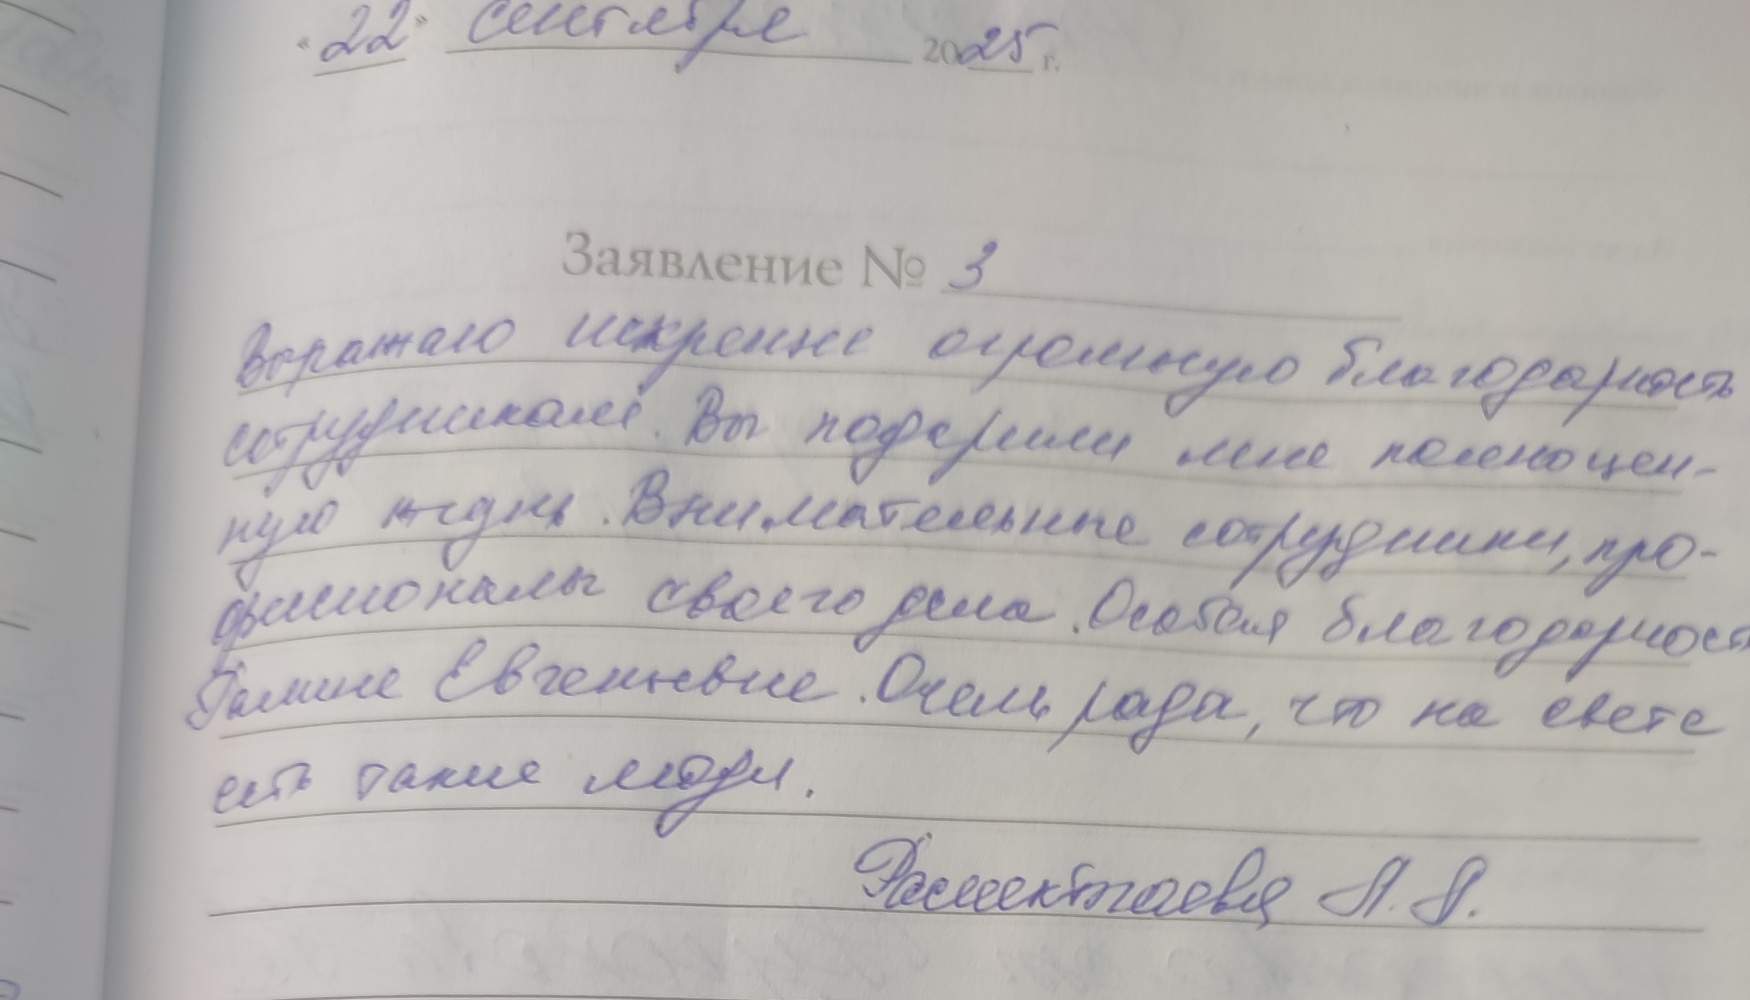 "22" сентября 2025 г.
Заявление № 3
Выражаю искренне огромную благодарность
сотрудникам. Вы подарили мне полноцен-
ную жизнь. Внимательные сотрудники, про-
фессионалы своего дела. Особая благодарность
Галине Евгеньевне. Очень рада, что на свете
есть такие люди.